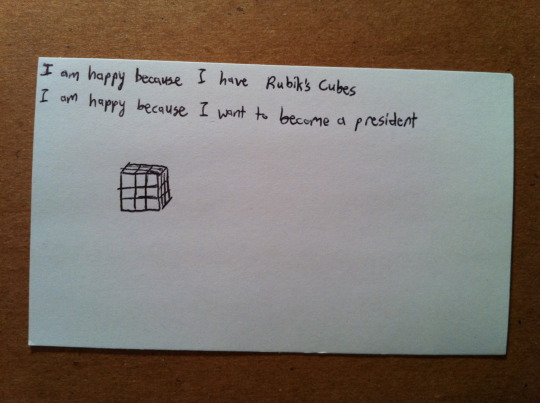 I am happy because I have Rubik's Cubes
I am happy because I want to become a president